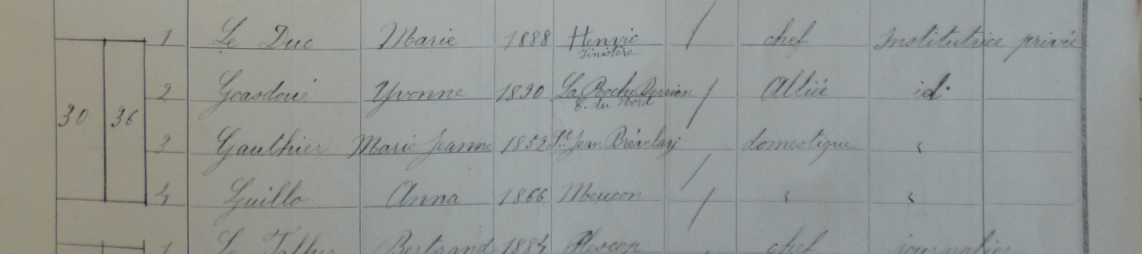 1 Le Duc Marie 1888 Henvic / chef Institutrice privée
Finistère
2 Goasdoué Yvonne 1890 La Roche Derrien / Alliée id.
C. du Nord
30 36
3 Gauthier Marie Jeanne 1852 St Jean Brévelay / domestique "
4 Guillo Anna 1866 Meucon / " "
1 Le Bertrand 1884 Plescop chef journalier